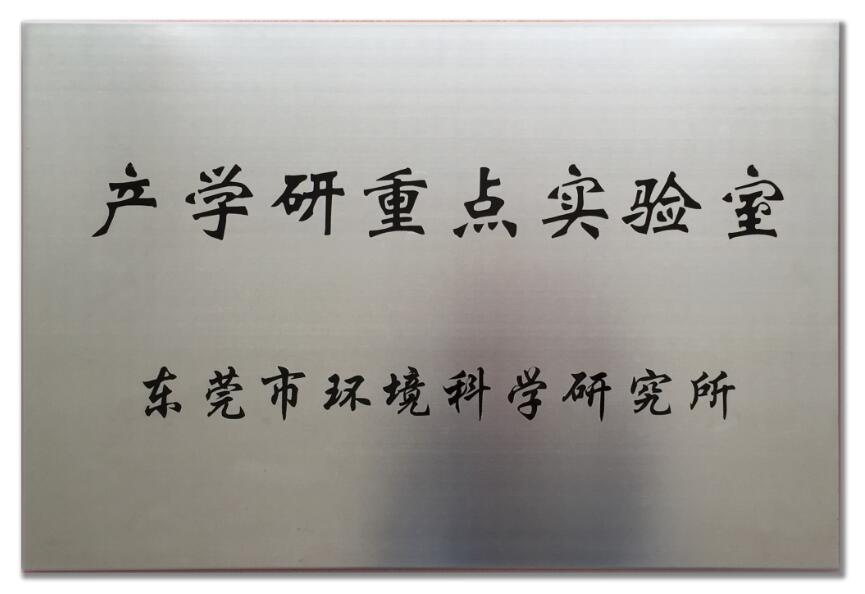 产学研重点实验室
东莞市环境科学研究所